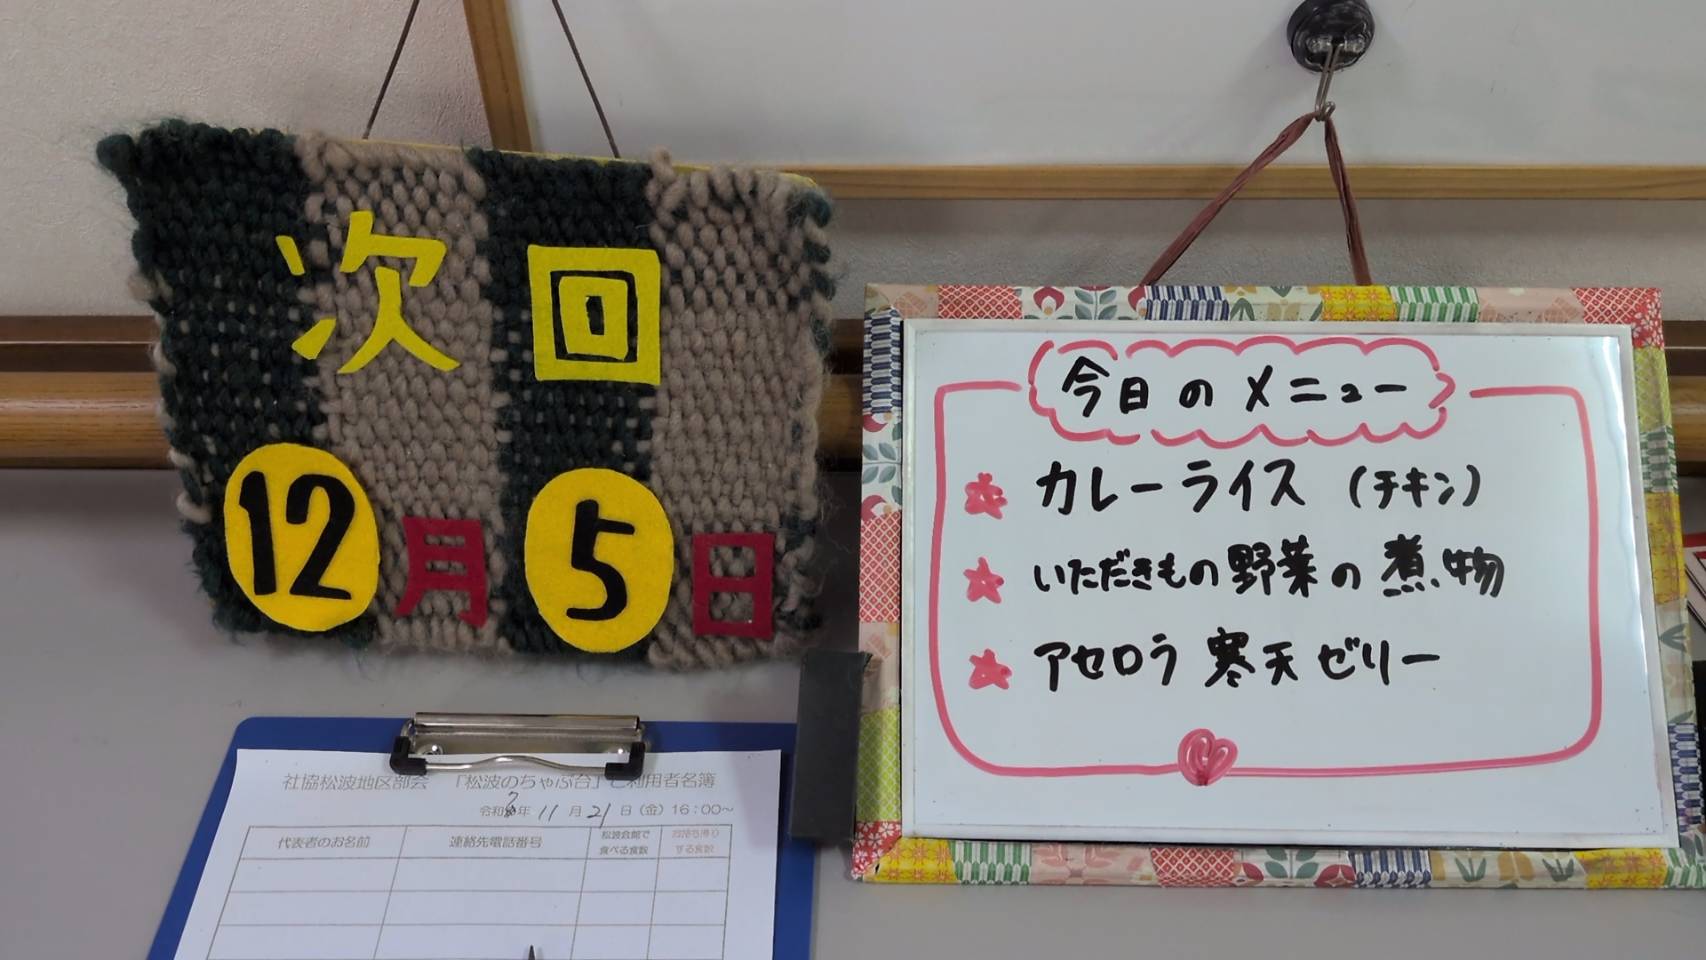 次回
12月5日
今日のメニュー
カレーライス (チキン)
いただきもの野菜の煮物
アセロラ寒天ゼリー
社協松波地区部会 「松波のちゃぶ台」ご利用者名簿
令和7年 11月 21日(金)16:00~
代表者のお名前
連絡先電話番号
松波会館で
食べる食数
お持ち帰り
する食数